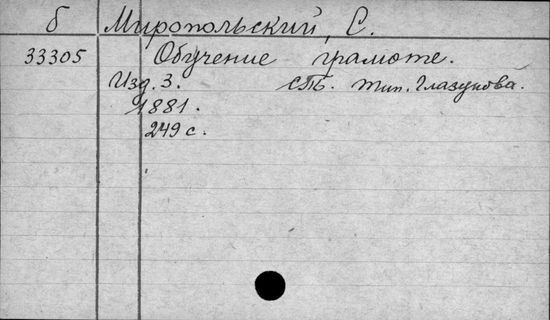 б Миропольский, С.
33305 Обучение грамоте.
Изд. 3. СПб. тип. Глазунова.
1881.
249 с.